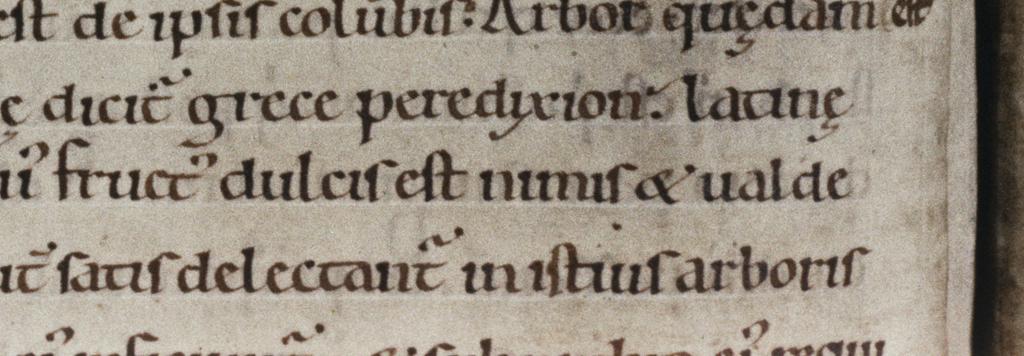 est de ipsis colūbis: Arbor quędam est
ę dicit᷑ grece peredixion: latinę
ui᷒ fruct᷒ dulcis est nimis & ualde
satis delectant᷑ in istius arboris